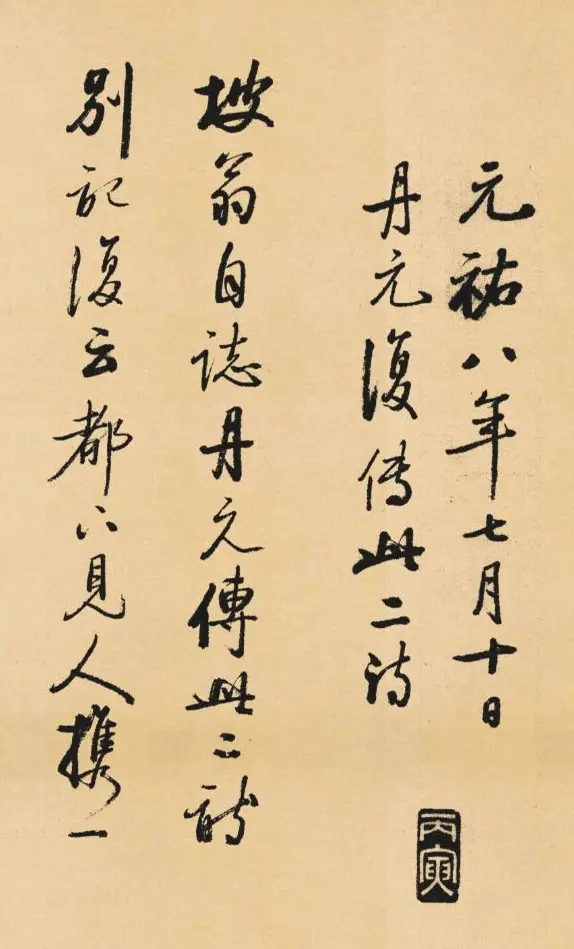 元祐八年七月十日
丹元復傳此二詩
丙寅
坡翁自誌丹元傳此二詩
別記復云都下見人攜一